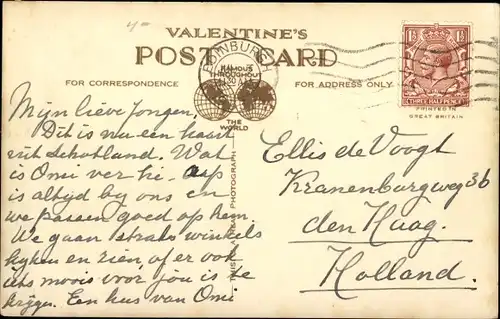 VALENTINE'S
POST CARD
EDINBURGH
FAMOUS
THROUGHOUT
THE
WORLD
FOR CORRESPONDENCE
FOR ADDRESS ONLY.
THREE HALF PENCE
PRINTED IN
GREAT BRITAIN
THIS IS A REAL PHOTOGRAPH
Mijn lieve Jongen,
Dit is nu een kaart
uit Schotland. Wat
is Omi ver hé. Aap
is altijd by ons en
we passen goed op hem.
We gaan straks winkels
kyken en zien, of er ook
iets moois voor jou is te
krijgen. Een kus van Omi.
Ellis de Voogt
Kranenburgweg 36
den Haag.
Holland.